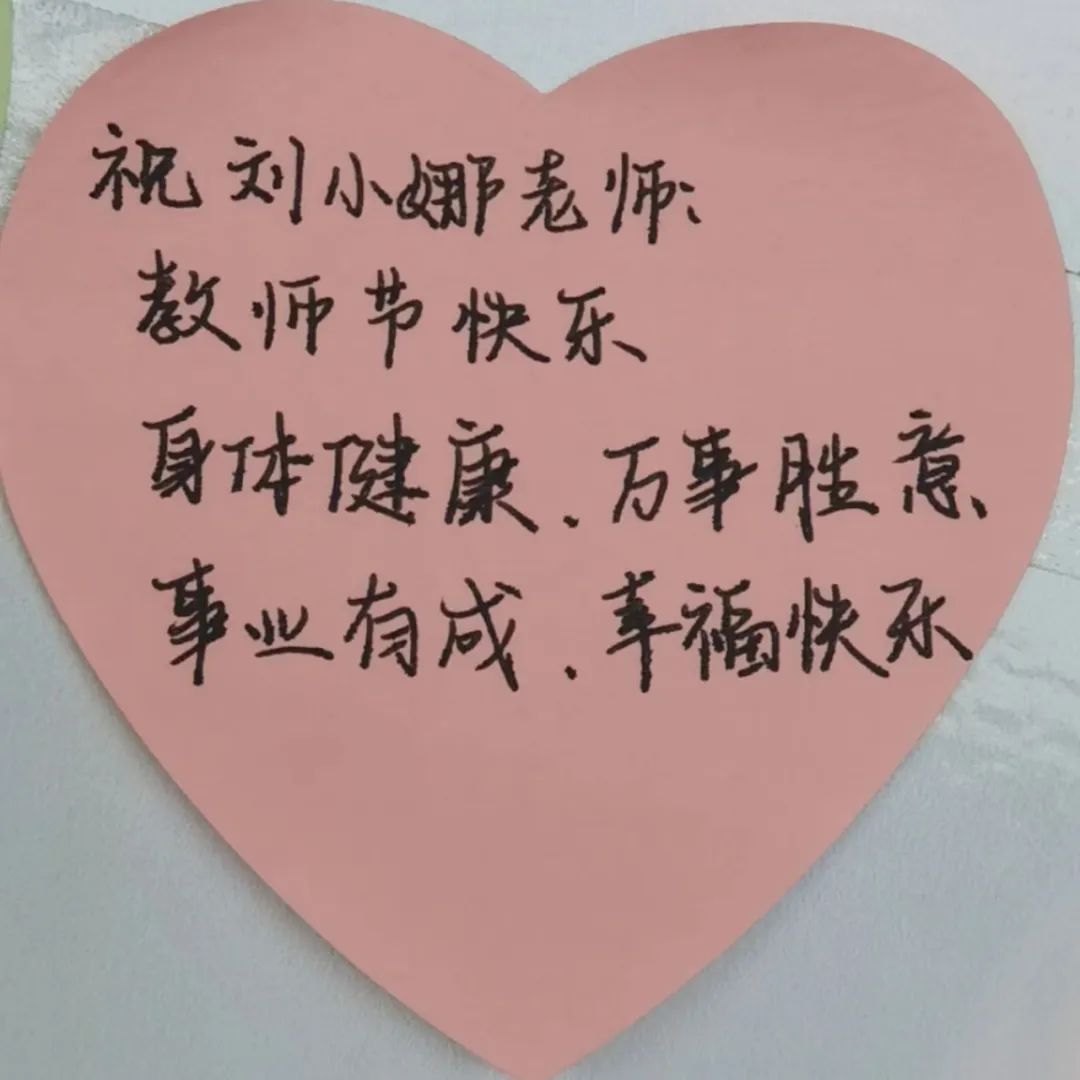 祝刘小娜老师:
教师节快乐
身体健康.万事胜意
事业有成.幸福快乐